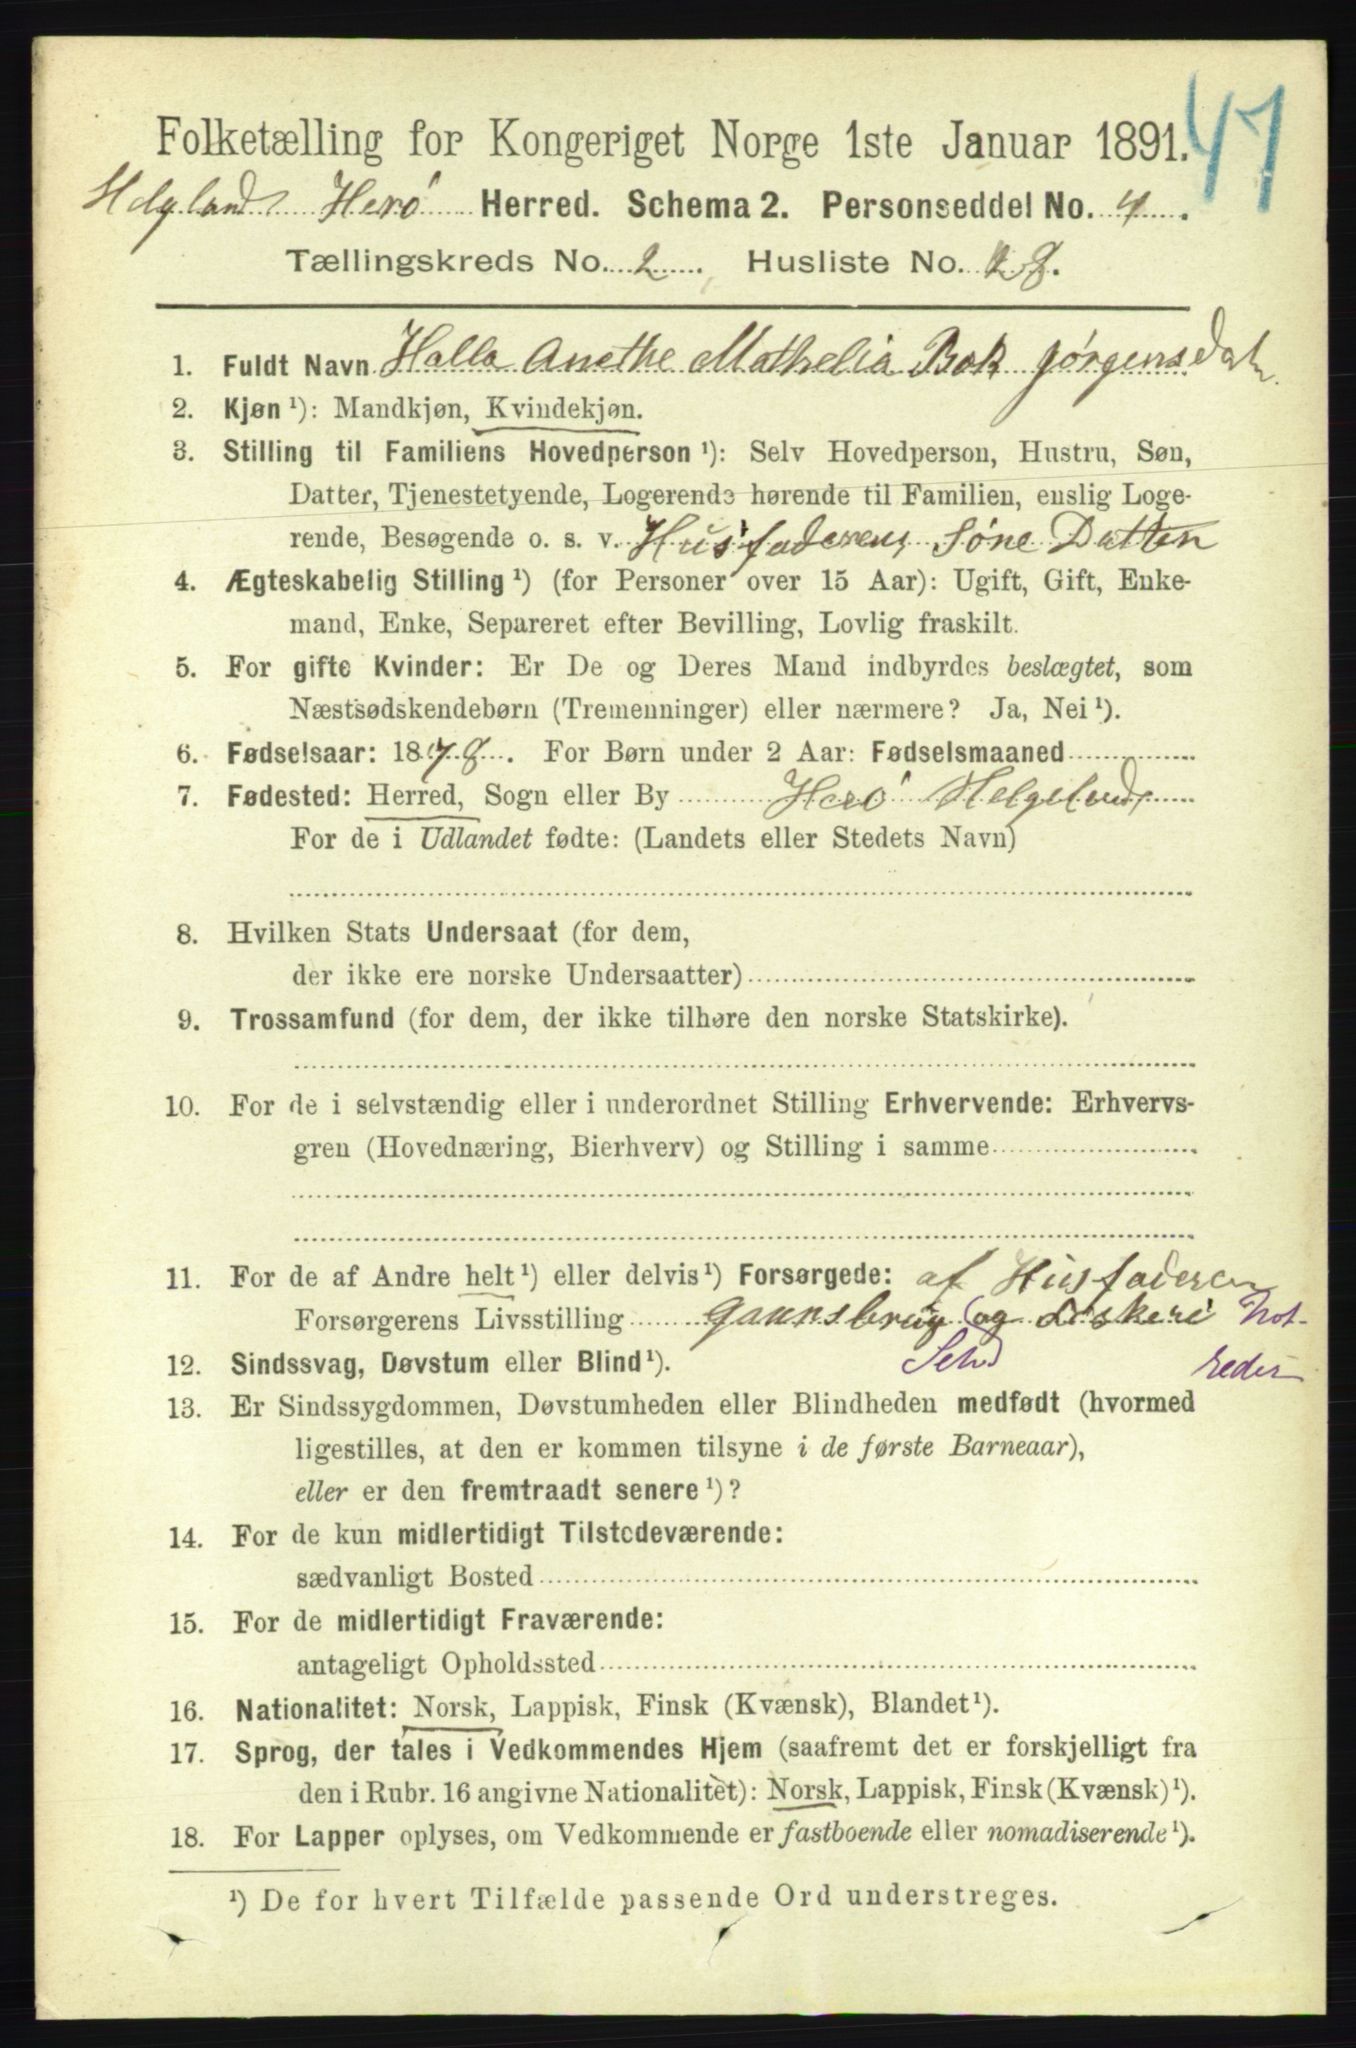 Folketælling for Kongeriget Norge 1ste Januar 1891.
47
Helgland Herø Herred. Schema 2. Personseddel No. 4.
Tællingskreds No. 2. Husliste No. 28.
1. Fuldt Navn Halla Anethe Mathelia Bok Jørgensdat
2. Kjøn ¹): Mandkjøn, Kvindekjøn.
3. Stilling til Familiens Hovedperson ¹): Selv Hovedperson, Hustru, Søn,
Datter, Tjenestetyende, Logerende hørende til Familien, enslig Loge-
rende, Besøgende o. s. v. Husfaderens Søne Datter
4. Ægteskabelig Stilling ¹) (for Personer over 15 Aar): Ugift, Gift, Enke-
mand, Enke, Separeret efter Bevilling, Lovlig fraskilt.
5. For gifte Kvinder: Er De og Deres Mand indbyrdes beslægtet, som
Næstsødskendebørn (Tremenninger) eller nærmere? Ja, Nei ¹).
6. Fødselsaar: 1878. For Børn under 2 Aar: Fødselsmaaned
7. Fødested: Herred, Sogn eller By Herø Helgeland
For de i Udlandet fødte: (Landets eller Stedets Navn)
8. Hvilken Stats Undersaat (for dem,
der ikke ere norske Undersaatter)
9. Trossamfund (for dem, der ikke tilhøre den norske Statskirke).
10. For de i selvstændig eller i underordnet Stilling Erhvervende: Erhvervs-
gren (Hovednæring, Bierhverv) og Stilling i samme
11. For de af Andre helt ¹) eller delvis ¹) Forsørgede: af Husfaderen
Forsørgerens Livsstilling Gaunsbrug og Fiskeri Not-
12. Sindssvag, Døvstum eller Blind ¹). Selv reder
13. Er Sindssygdommen, Døvstumheden eller Blindheden medfødt (hvormed
ligestilles, at den er kommen tilsyne i de første Barneaar),
eller er den fremtraadt senere ¹)?
14. For de kun midlertidigt Tilstedeværende:
sædvanligt Bosted
15. For de midlertidigt Fraværende:
antageligt Opholdssted
16. Nationalitet: Norsk, Lappisk, Finsk (Kvænsk), Blandet ¹).
17. Sprog, der tales i Vedkommendes Hjem (saafremt det er forskjelligt fra
den i Rubr. 16 angivne Nationalitet): Norsk, Lappisk, Finsk (Kvænsk) ¹).
18. For Lapper oplyses, om Vedkommende er fastboende eller nomadiserende ¹).
¹) De for hvert Tilfælde passende Ord understreges.